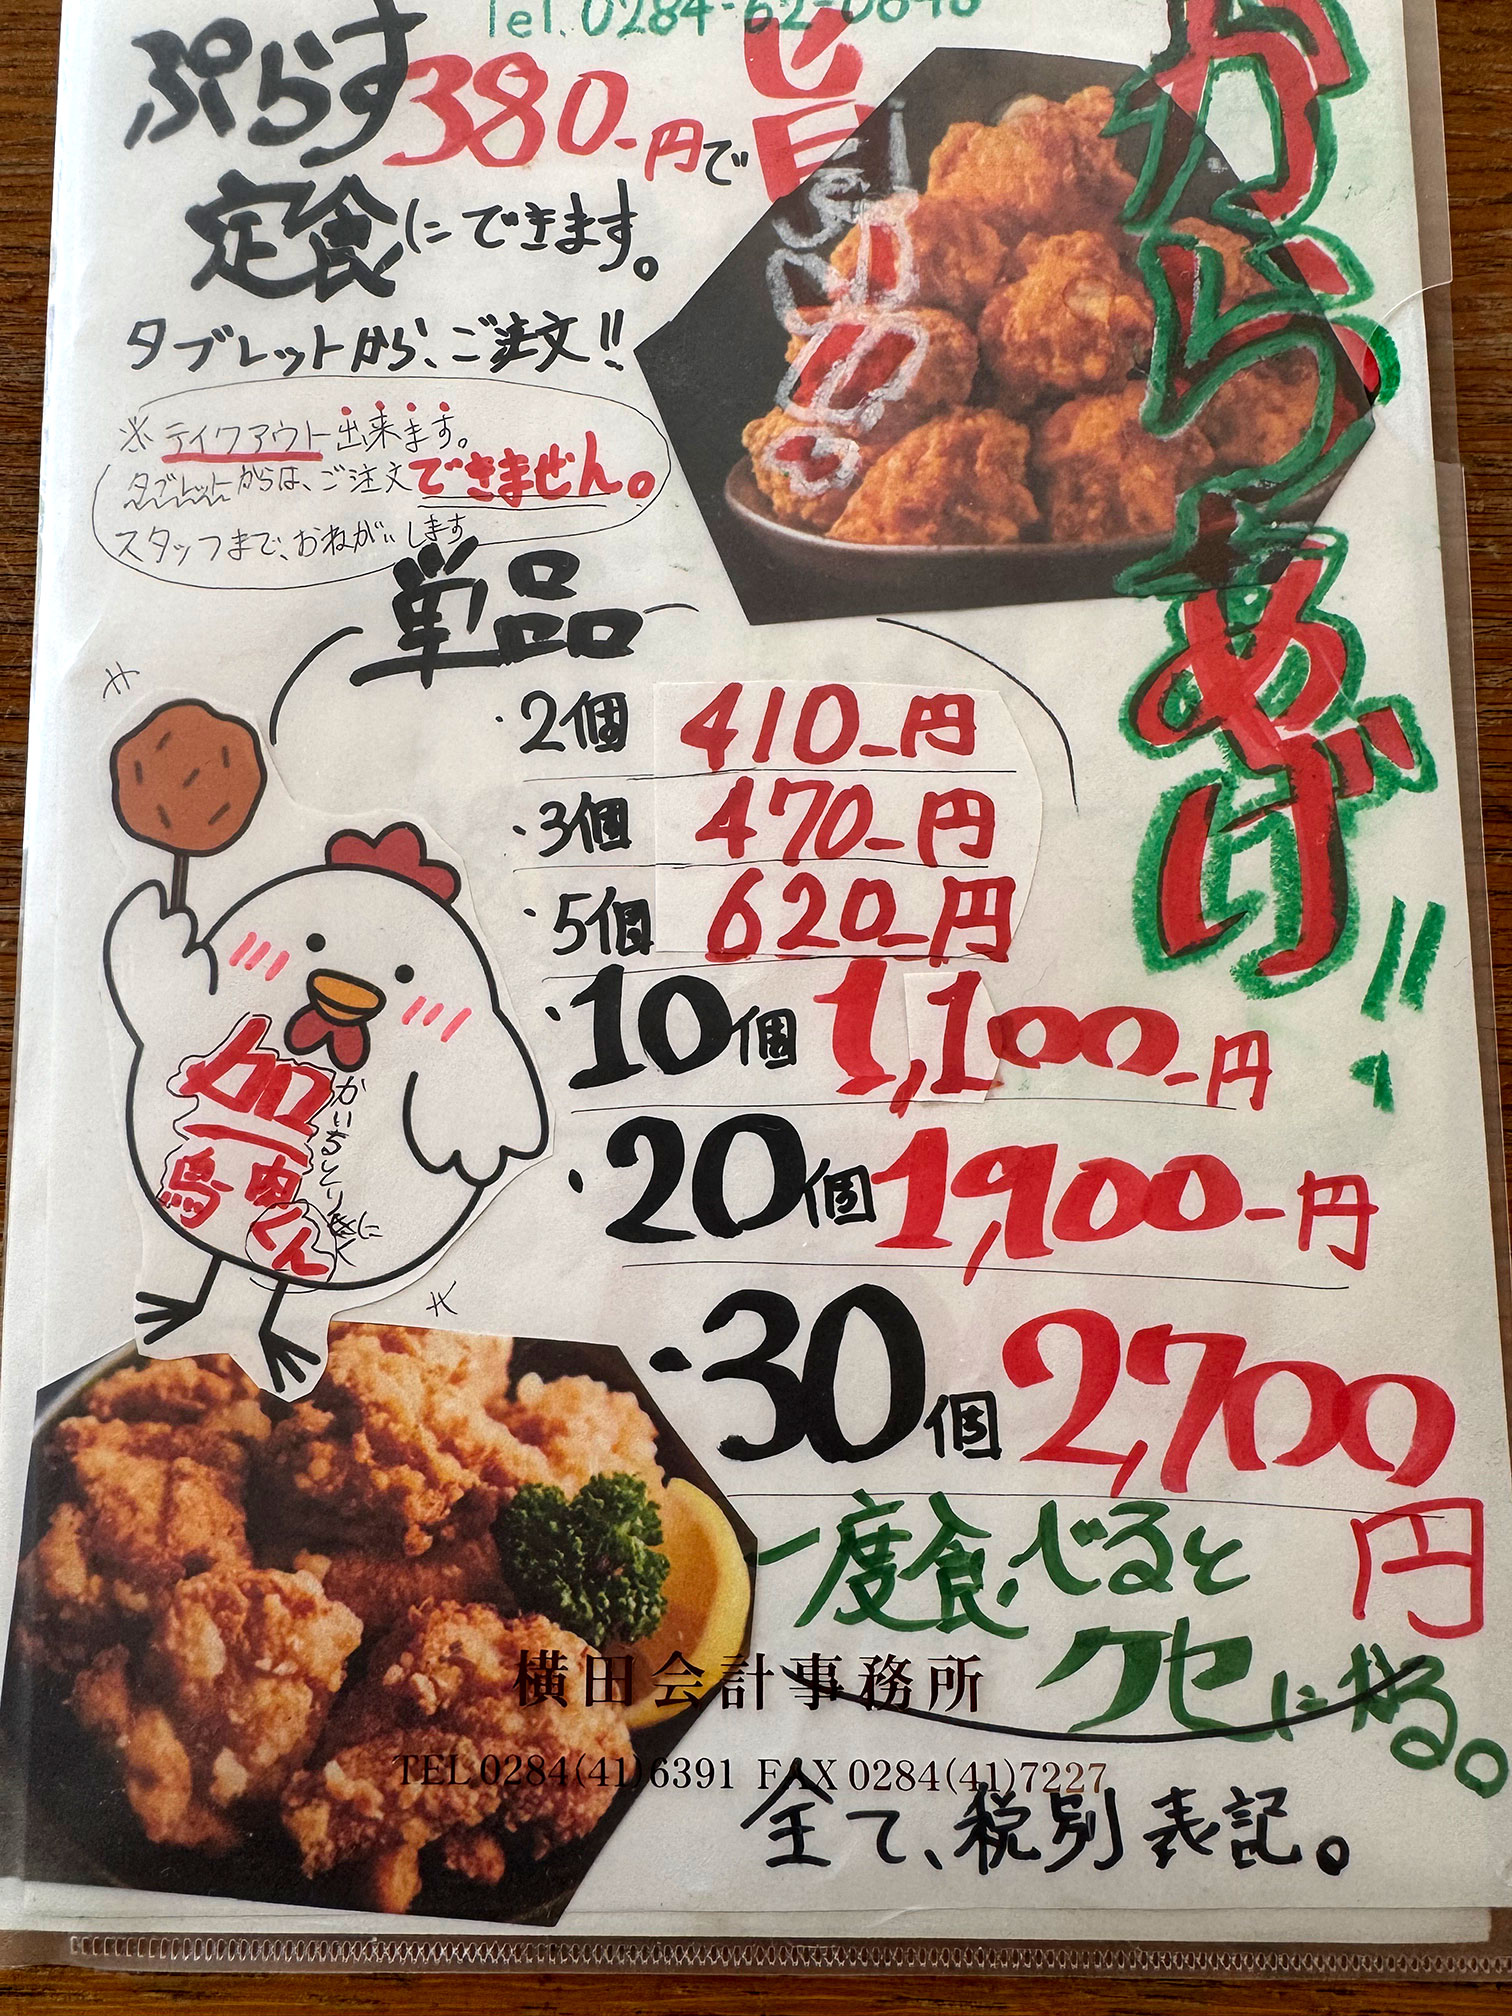 Tel.0284-62-0646
ぷらす380-円で
定食にできます。
タブレットから、ご注文!!
※テイクアウト出来ます。
タブレットからは、ご注文できません。
スタッフまで、おねがいします
旨
からあげ!!
単品
・2個 410-円
・3個 470-円
・5個 620-円
・10個 1,100-円
・20個 1,900-円
・30個 2,700円
加一
鳥肉
くん
かいちとりにく
一度食べると
クセになる。
横田会計事務所
TEL 0284(41)6391 FAX 0284(41)7227
全て、税別表記。